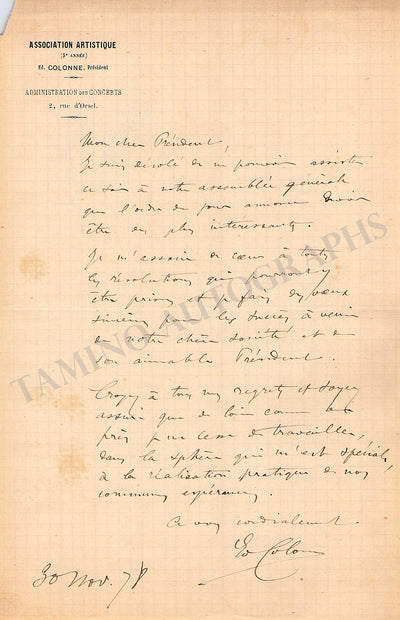 ASSOCIATION ARTISTIQUE
(5e ANNÉE)
Ed. COLONNE, Président
ADMINISTRATION DES CONCERTS
2, rue d'Orsel.
Mon cher Président,
Je suis désolé de ne pouvoir assister
ce soir à notre assemblée générale
que l'ordre du jour annonce devoir
être des plus intéressants.
Je m'associe de cœur à toutes
les résolutions qui pourront y
être prises et fais des vœux
sincères pour les succès à venir
de notre chère société et de
son aimable Président.
Croyez à tous mes regrets et soyez
assuré que de loin comme de
près je ne cesse de travailler,
dans la sphère qui m'est spéciale,
à la réalisation pratique de nos
communes espérances.
A vous cordialement.
Ed Colonne
30 Nov. 78
TAMINO AUTOGRAPHS